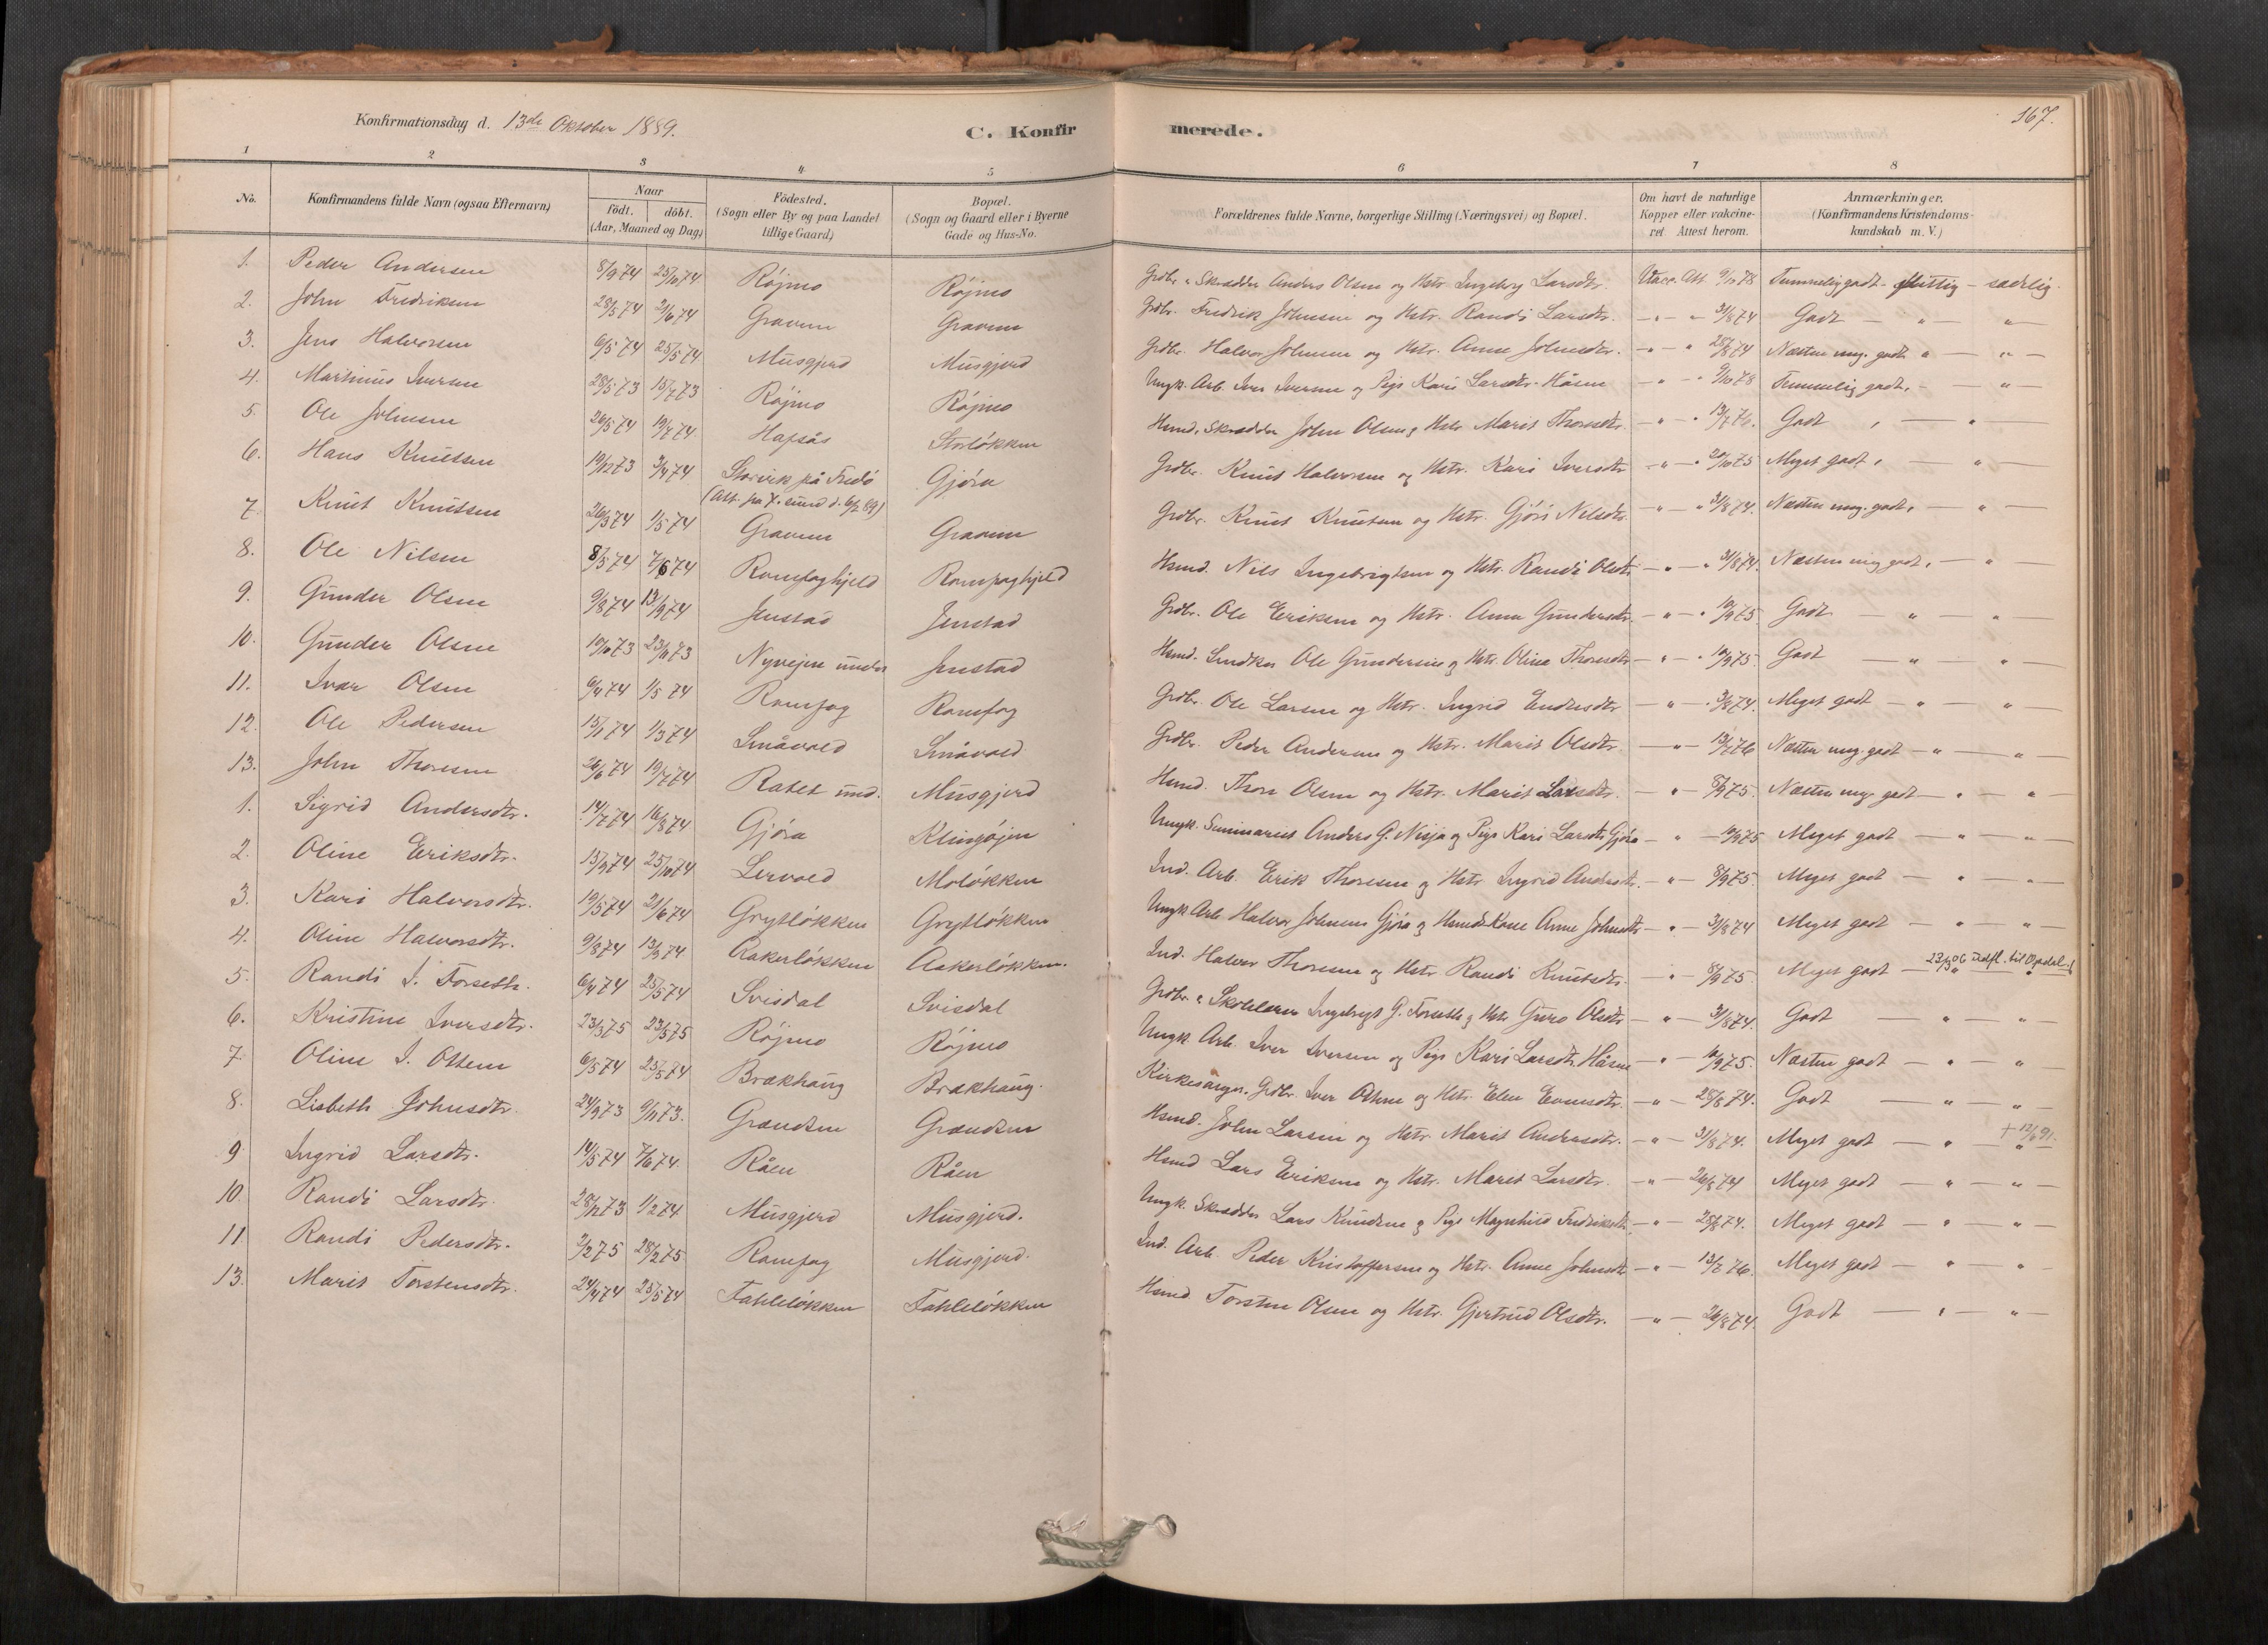 Konfirmationsdag d. 13de Oktober 1889.
C. Konfirmerede.
167.
1 2 3 4 5 6 7 8
No.
Konfirmandens fulde Navn (ogsaa Efternavn)
Naar
födt. döbt.
(Aar, Maaned og Dag)
Födested.
(Sogn eller By og paa Landet
tillige Gaard)
Bopæl.
(Sogn og Gaard eller i Byerne
Gade og Hus-No.
Forældrenes fulde Navne, borgerlige Stilling (Næringsvei) og Bopæl.
Om havt de naturlige
Kopper eller vakcine-
ret Attest herom.
Anmærkninger.
(Konfirmandens Kristendoms-
kundskab m. V.)
1. Peder Andersen 8/9 74 25/10 74 Röjmo Röjmo Grdbr. & Skrædder Anders Olsen og Hstr. Ingeborg Larsdtr. Vacc. Att 9/10 78 Temmelig godt - flittig - sædelig.
2. John Fredriksen 28/5 74 21/6 74 Gravem Gravem Grdbr. Fredrik Johnsen og Hstr. Randi Larsdtr. — " — 31/8 74 Godt — " — " —
3. Jens Halvorsen 6/5 74 25/5 74 Musgjerd Musgjerd Grdbr. Halvor Johnsen og Hstr. Anne Johnsdtr. — " — 28/8 74 Næsten meg. godt " — " —
4. Martinus Iversen 28/5 73 15/7 73 Röjmo Röjmo Ungk. Arb. Iver Iversen og Pige Kari Larsdtr. Håsen — " — 9/10 78 Temmelig godt, — " —
5. Ole Johnsen 26/5 74 19/7 74 Hafsås Storlökken Husmd. Skrædder John Olsen og Hstr. Marit Thoresdtr. — " — 13/7 76. Godt " — " —
6. Hans Knutsen 19/12 73 3/4 74 Storvik på Fredö Gjöra Grdbr. Knut Halvorsen og Hstr. Kari Iversdtr — " — 20/10 75 Meget godt " — " —
(Att. fra K.sund d. 6/2 89)
7. Knut Knutsen 26/3 74 1/5 74 Gravem Gravem Grdbr. Knut Knutsen og Hstr. Gjöri Nilsdtr. — " — 31/8 74. Næsten meg. godt, — " —
8. Ole Nilsen 8/5 74 7/6 74 Romfoghjeld Romfoghjeld Husmd. Nils Ingebrigtsen og Hstr. Randi Olsdtr. — " — 31/8 74. Næsten meg godt, — " —
9. Gunder Olsen 9/8 74 13/9 74 Jenstad Jenstad Grdbr. Ole Eriksen og Hstr. Anne Gundersdtr — " — 10/9 75 Godt — " — " —
10. Gunder Olsen 19/10 73 23/11 73 Nyvejen under Jenstad Husmd. Snedker Ole Gundersen og Hstr. Oline Thoresdtr. — " — 10/9 75. Godt — " — " —
11. Ivar Olsen 6/4 74 1/5 74 Romfog Romfog Grdbr. Ole Larsen og Hstr. Ingrid Endresdtr — " — 31/8 74. Meget godt — " — " —
12. Ole Pedersen 15/1 74 1/3 74 Småvold Småvold Grdbr. Peder Andersen og Hstr. Marit Olsdtr. — " — 13/7 76 Næsten meg. godt — " — " —
13. John Thoresen 26/6 74 19/7 74 Ratet und. Musgjerd Husmd. Thore Olsen og Hstr. Marit Larsdtr. — " — 8/9 75. Næsten meg. godt — " — " —
1. Sigrid Andersdtr. 14/7 74 16/8 74 Gjöra Klingöjen Ungk. Seminarist Anders G. Nisja og Pige Kari Larsdtr. Gjöra " — 10/9 75 Meget godt — " — " —
2. Oline Eriksdtr. 15/9 74 25/10 74 Lervold Molökken Ind. Arb. Erik Thoresen og Hstr Ingrid Andersdtr. — " — 8/9 75. Meget godt — " — " —
3. Kari Halvorsdtr. 19/5 74 21/6 74 Grytlökken Grytlökken Ungk. Arb. Halvor Johnsen Gjöra og Husmds Kone Anne Johnsdtr — " — 31/8 74 Meget godt — " — " —
4. Oline Halvorsdtr. 9/8 74 13/9 74 Aakerlökken Aakerlökken. Ind. Halvor Thoresen og Hstr Randi Knutsdtr. — " — 8/9 75 Meget godt — 23/3 06 Udfl. til Opdal
5. Randi I. Forseth. 6/4 74 25/5 74 Svisdal Svisdal Grdbr. & Skolelærer Ingebrigt G. Forseth og Hstr. Guro Olsdtr — " — 31/8 74. Godt — " — " —
6. Kristine Iversdtr. 23/3 75 23/5 75 Röjmo Röjmo Ungk. Arb. Iver Iversen og Pige Kari Larsdtr. Håsen " — 10/9 75. Næsten godt — " — " —
7. Oline I. Ottem 6/5 74 25/5 74 Brækhaug Brækhaug. Kirkesanger. Grdbr. Iver Ottem og Hstr. Elen Evensdtr. — " — 28/8 74. Godt — " — " —
8. Lisbeth Johnsdtr. 24/9 73 9/11 73. Grændsen Grændsen Husmd. John Larsen og Hstr. Marit Andersdtr. — " — 31/8 74. Meget godt — " — + 12/6 91.
9 Ingrid Larsdtr. 14/5 74 7/6 74 Råen Råen Husmd Lars Eriksen og Hstr. Marit Larsdtr. — " — 26/8 74 Meget godt — " — " —
10. Randi Larsdtr. 28/12 73 1/2 74 Musgjerd Musgjerd. Ungk. Skrædder Lars Knudsen og Pige Magnhild Fredriksdtr. — " — 28/8 74. Meget godt — " — " —
11. Randi Pedersdtr. 2/2 75 28/2 75 Romfog Musgjerd. Ind. Arb. Peder Kristoffersen og Hstr. Anne Johnsdtr — " — 13/7 76. Meget godt — " — " —
13. Marit Torstensdtr. 24/4 74 25/5 74 Fahlelökken Fahlelökken Husmd Torsten Olsen og Hstr. Gjertrud Olsdtr. — " — 26/8 74. Godt — " — " —